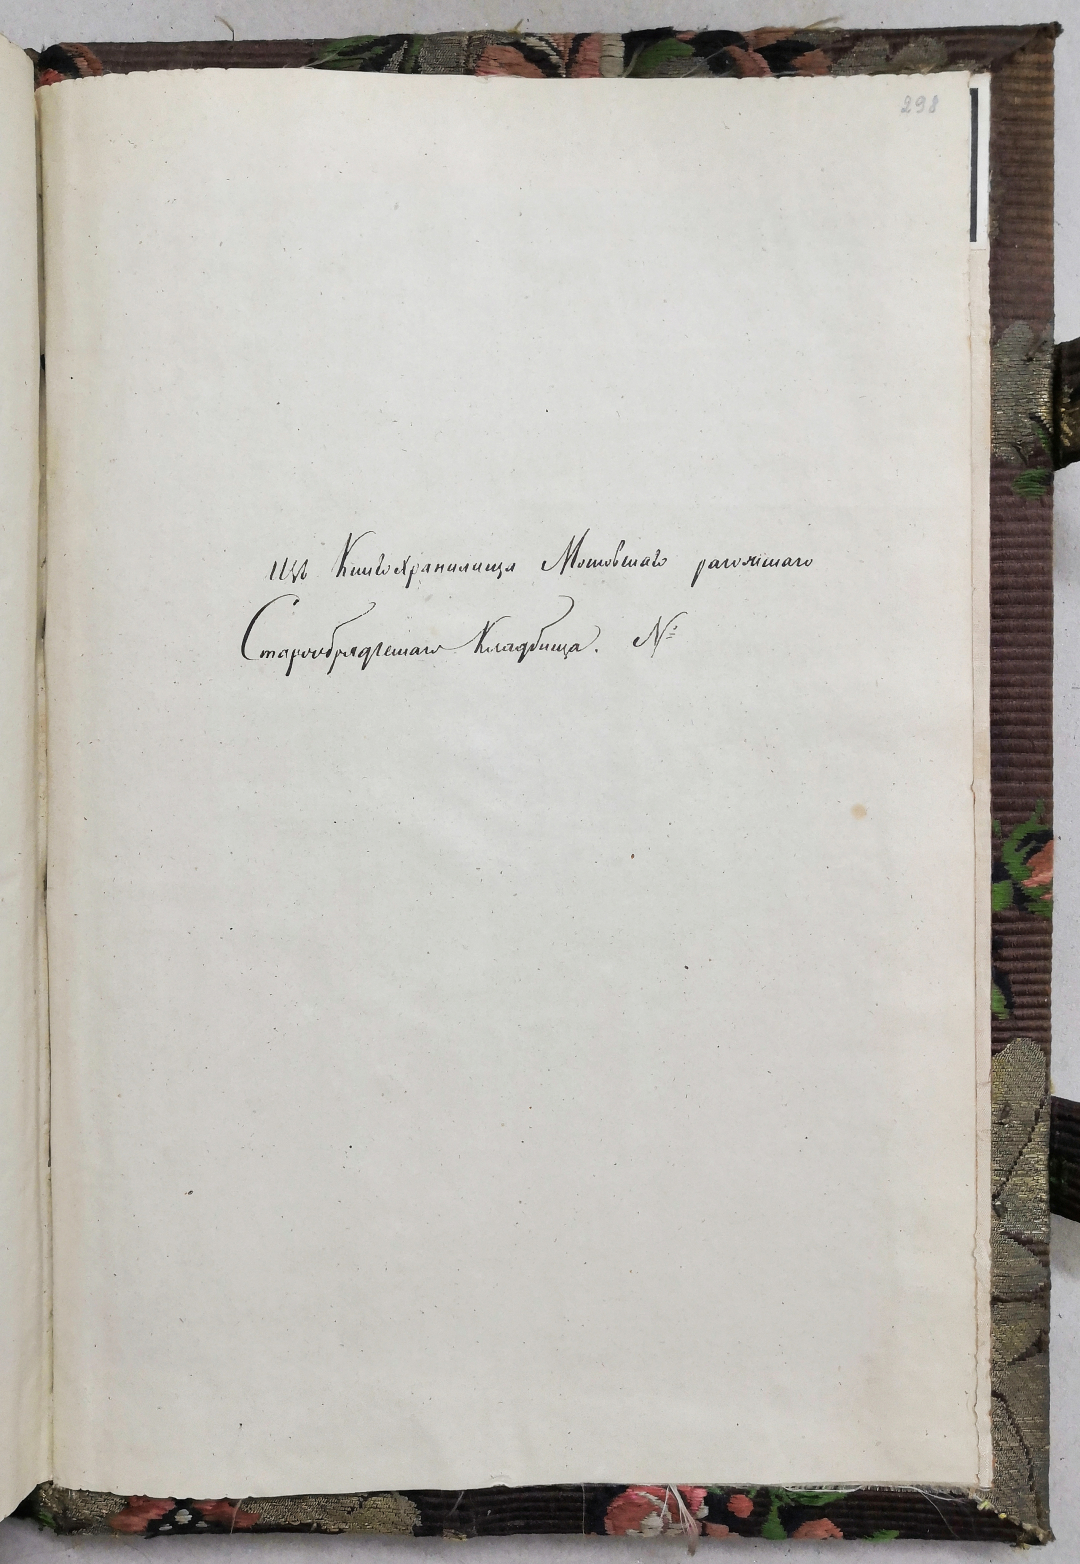 298
Изъ Книгохранилища Московскаго рагожскаго
Старообрядческаго Кладбища. №